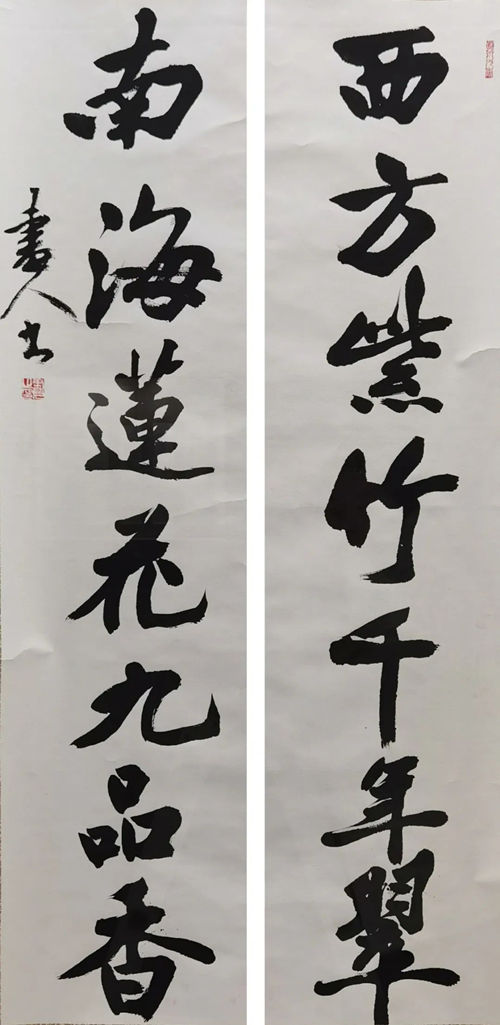 西方紫竹千年翠
南海蓮花九品香
人书